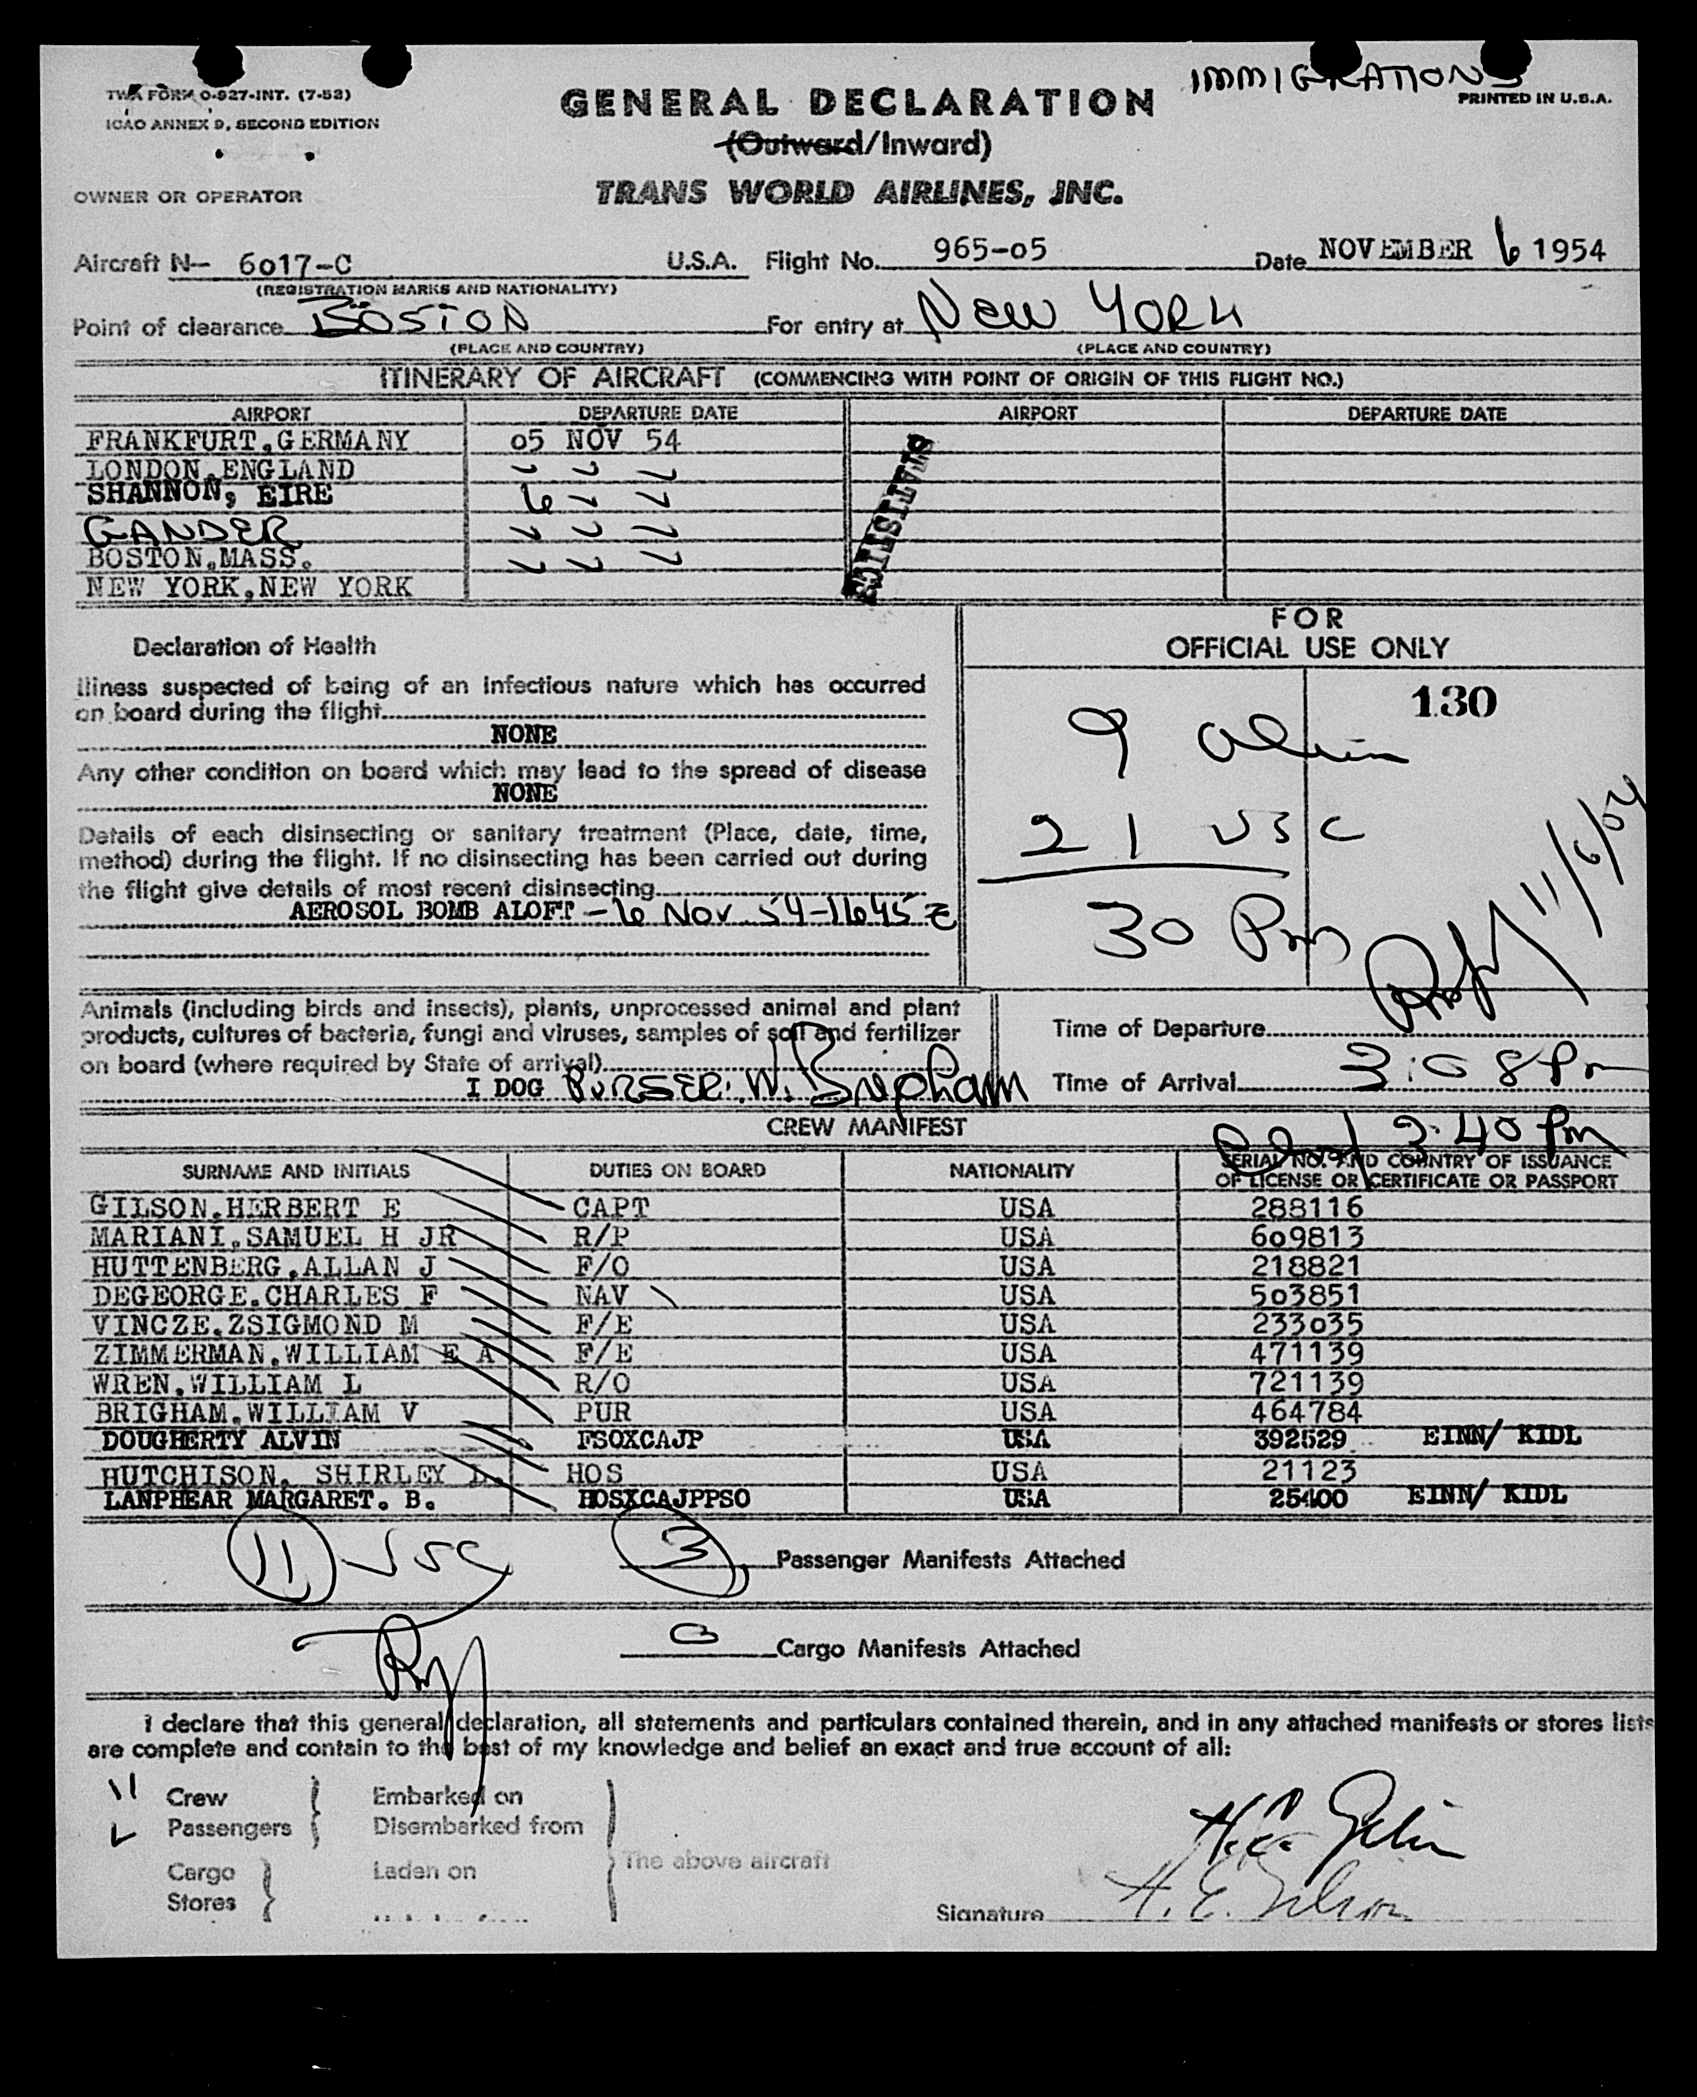 IMMIGRATIONS
TWA FORM O-927-INT. (7-53)
ICAO ANNEX 9, SECOND EDITION
PRINTED IN U.S.A.
GENERAL DECLARATION
(Outward/Inward)
OWNER OR OPERATOR
TRANS WORLD AIRLINES, INC.
Aircraft N- 6017-C U.S.A. Flight No. 965-05 Date NOVEMBER 6 1954
(REGISTRATION MARKS AND NATIONALITY)
Point of clearance BOSTON For entry at NEW YORK
(PLACE AND COUNTRY) (PLACE AND COUNTRY)
ITINERARY OF AIRCRAFT (COMMENCING WITH POINT OF ORIGIN OF THIS FLIGHT NO.)
AIRPORT DEPARTURE DATE AIRPORT DEPARTURE DATE
FRANKFURT,GERMANY 05 NOV 54
LONDON,ENGLAND
SHANNON, EIRE 6
GANDER
BOSTON,MASS.
NEW YORK,NEW YORK
STATISTICS
FOR
OFFICIAL USE ONLY
130
9 Alien
21 USC
30 Pm
11/6/54
Declaration of Health
Illness suspected of being of an infectious nature which has occurred
on board during the flight
NONE
Any other condition on board which may lead to the spread of disease
NONE
Details of each disinsecting or sanitary treatment (Place, date, time,
method) during the flight. If no disinsecting has been carried out during
the flight give details of most recent disinsecting
AEROSOL BOMB ALOFT - 6 Nov 54-1645 Z
Animals (including birds and insects), plants, unprocessed animal and plant
products, cultures of bacteria, fungi and viruses, samples of soil and fertilizer
on board (where required by State of arrival)
I DOG PURSER: W. Brigham
Time of Departure
Time of Arrival 3:08 Pm
3:40 Pm
CREW MANIFEST
SURNAME AND INITIALS DUTIES ON BOARD NATIONALITY SERIAL NO. AND COUNTRY OF ISSUANCE
OF LICENSE OR CERTIFICATE OR PASSPORT
GILSON,HERBERT E CAPT USA 288116
MARIANI,SAMUEL H JR R/P USA 609813
HUTTENBERG,ALLAN J F/O USA 218821
DEGEORGE,CHARLES F NAV USA 503851
VINCZE,ZSIGMOND M F/E USA 233035
ZIMMERMAN,WILLIAM E A F/E USA 471139
WREN,WILLIAM L R/O USA 721139
BRIGHAM,WILLIAM V PUR USA 464784
DOUGHERTY ALVIN FSOXCAJP USA 392529 EINN/ KIDL
HUTCHISON, SHIRLEY L. HOS USA 21123
LANPHEAR MARGARET. B. HOSXCAJPPSO USA 25400 EINN/ KIDL
11 USC
3 Passenger Manifests Attached
0 Cargo Manifests Attached
I declare that this general declaration, all statements and particulars contained therein, and in any attached manifests or stores lists
are complete and contain to the best of my knowledge and belief an exact and true account of all:
11 Crew Embarked on
Passengers Disembarked from
The above aircraft
Cargo Laden on
Stores
Signature H. E. Gilson
H. E. Gilson